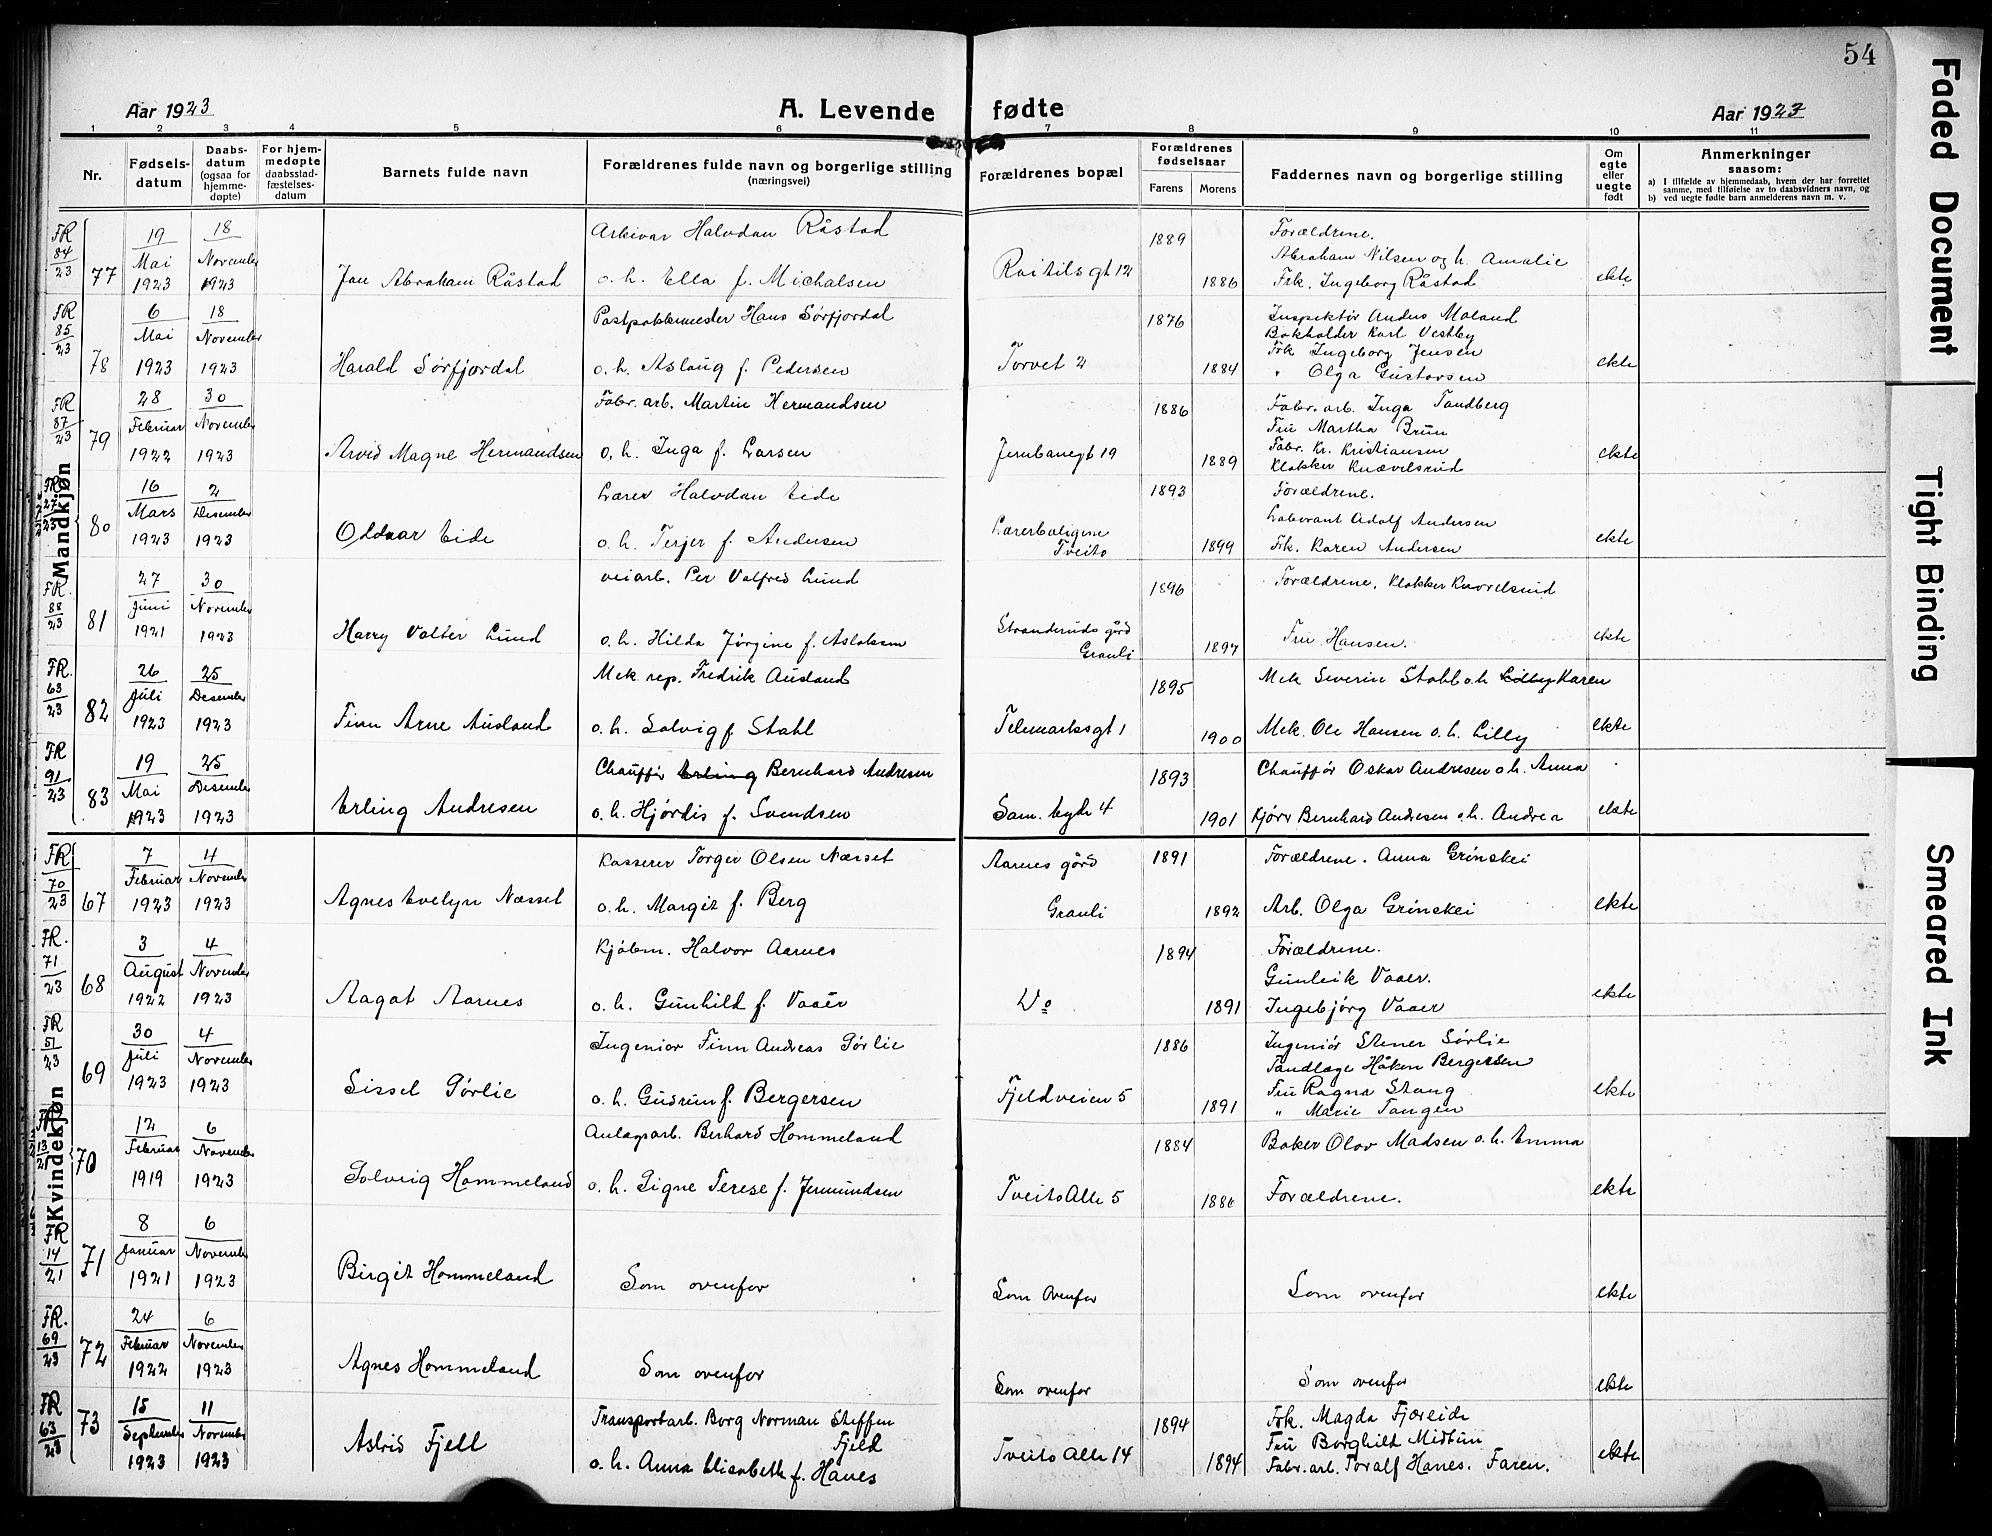 54
Aar 1923
A. Levende fødte
Aar 1923
1 2 3 4 5 6 7 8 9 10 11
Nr.
Fødsels-
datum
Daabs-
datum
(ogsaa for
hjemme-
døpte)
For hjem-
medøpte
daabsstad-
fæstelses-
datum
Barnets fulde navn
Forældrenes fulde navn og borgerlige stilling
(næringsvei)
Forældrenes bopæl
Forældrenes
fødselsaar
Farens
Morens
Faddernes navn og borgerlige stilling
Om
egte
eller
uegte
født
Anmerkninger
saasom:
a) I tilfælde av hjemmedaab, hvem der har forrettet
samme, med tilføielse av to daabsvidners navn, og
b) ved uegte fødte barn anmelderens navn m. v.
Mandkjøn
FR 84/23 77
19 Mai 1923
18 November 1923
Jan Abraham Råstad
Arkivar Halvdan Råstad
o. h. Ella f. Michalsen
gt 12
1889
1886
Forældrene.
Abraham Nilsen og h. Amalie
Frk. Ingeborg Råstad
ekte
FR 85/23 78
6 Mai 1923
18 November 1923
Harald Sørfjordal
Postpakkmester Hans Sørfjordal
o. h. Aslaug f. Pedersen
Torvet 2
1876
1884
Inspektør Anders Moland
Bokholder Karl Vestby
Frk Ingeborg Jensen
" Olga Gustavsen
ekte
FR 87/23 79
28 Februar 1922
30 November 1923
Arvid Magne Hermandsen
Fabr. arb. Martin Hermandsen
o. h. Inga f. Larsen
Jernbanegt 19
1886
1889
Fabr. arb. Inga Tandberg
Fru Martha Brun
Fabr. Kr. Kristiansen
Klokker Knævelsrud
ekte
FR 27/23 80
16 Mars 1923
2 Desember 1923
Oddvar Eide
Lærer Halvdan Eide
o. h. Terjer f. Andersen
Lærerboligene
Tveito
1893
1899
Forældrene.
Laborant Adolf Andersen
Frk. Karen Andersen
ekte
FR. 88/23 81
27 Juni 1921
30 November 1923
Harry Valter Lund
veiarb. Per Valfred Lund
o. h. Hilda Jørgine f. Aslaksen
Stranderuds gård
Grauli
1896
1897
Forældrene. Klokker Knævelsrud
Fru Hansen.
ekte
FR. 63/23 82
26 Juli 1923
25 Desember 1923
Finn Arne Ausland
Mek rep. Fredrik Ausland
o. h. Solvig f. Stahl
Telemarksgt 1
1895
1900
Mek Severin Stahl o. h. Karen
Mek. Ole Hansen o. h. Lilly
ekte
FR 91/23 83
19 Mai 1923
25 Desember 1923
Erling Andresen
Chauffør Erling Bernhard Andresen
o. h. Hjørdis f. Svendsen
Sam. bygn 4
1893
1901
Chauffør Oskar Andresen o. h. Anna
Kjørr Bernhard Andresen o. h. Andrea
ekte
Kvindekjøn
FR 70/23 67
7 Februar 1923
4 November 1923
Agnes Evelyn Næsset
Kasserer Torger Olsen Næsset
o. h. Margit f. Berg
Aarnes gård
Grauli
1891
1892
Forældrene. Anna Grinskei
Arb. Olga Grinskei
ekte
FR. 71/23 68
3 August 1922
4 November 1923
Aagot Aarnes
Kjøbm. Halvor Aarnes
o. h. Gunhild f. Vaaer
Do
1894
1891
Forældrene.
Gunleik Vaaer.
Ingebjørg Vaaer
ekte
FR 51/23 69
30 Juli 1923
4 November 1923
Sissel Sørlie
Ingeniør Finn Andreas Sørlie
o. h. Gudrun f. Bergersen
Fjeldveien 5
1886
1891
Ingeniør Stener Sørlie
Tandlæge Håken Bergersen
Fru Ragna Stang
" Marie Tangen
ekte
FR 13/21 70
12 Februar 1919
6 November 1923
Solveig Hommeland
Anlagsarb. Berhard Hommeland
o. h. Signe Terese f. Jermundsen
Tveito Alle 5
1884
1886
Baker Olav Madsen o. h. Emma
Forældrene.
ekte
FR 14/21 71
8 Januar 1921
6 November 1923
Birgit Hommeland
Som ovenfor
Som ovenfor
Som ovenfor
ekte
FR. 69/23 72
24 Februar 1922
6 November 1923
Agnes Hommeland
Som ovenfor
Som ovenfor
Som ovenfor
ekte
FR 63/23 73
15 September 1923
11 November 1923
Astrid Fjell
Transportarb. Borg Norman Steffen
Fjeld
o. h. Anna Elisabeth f. Hanes
Tveito Alle 14
1894
1894
Frk. Magda Fjæreide
Fru Borghild Midtun
Fabr. arb. Toralf Hanes. Faren.
ekte
Faded Document
Tight Binding
Smeared Ink